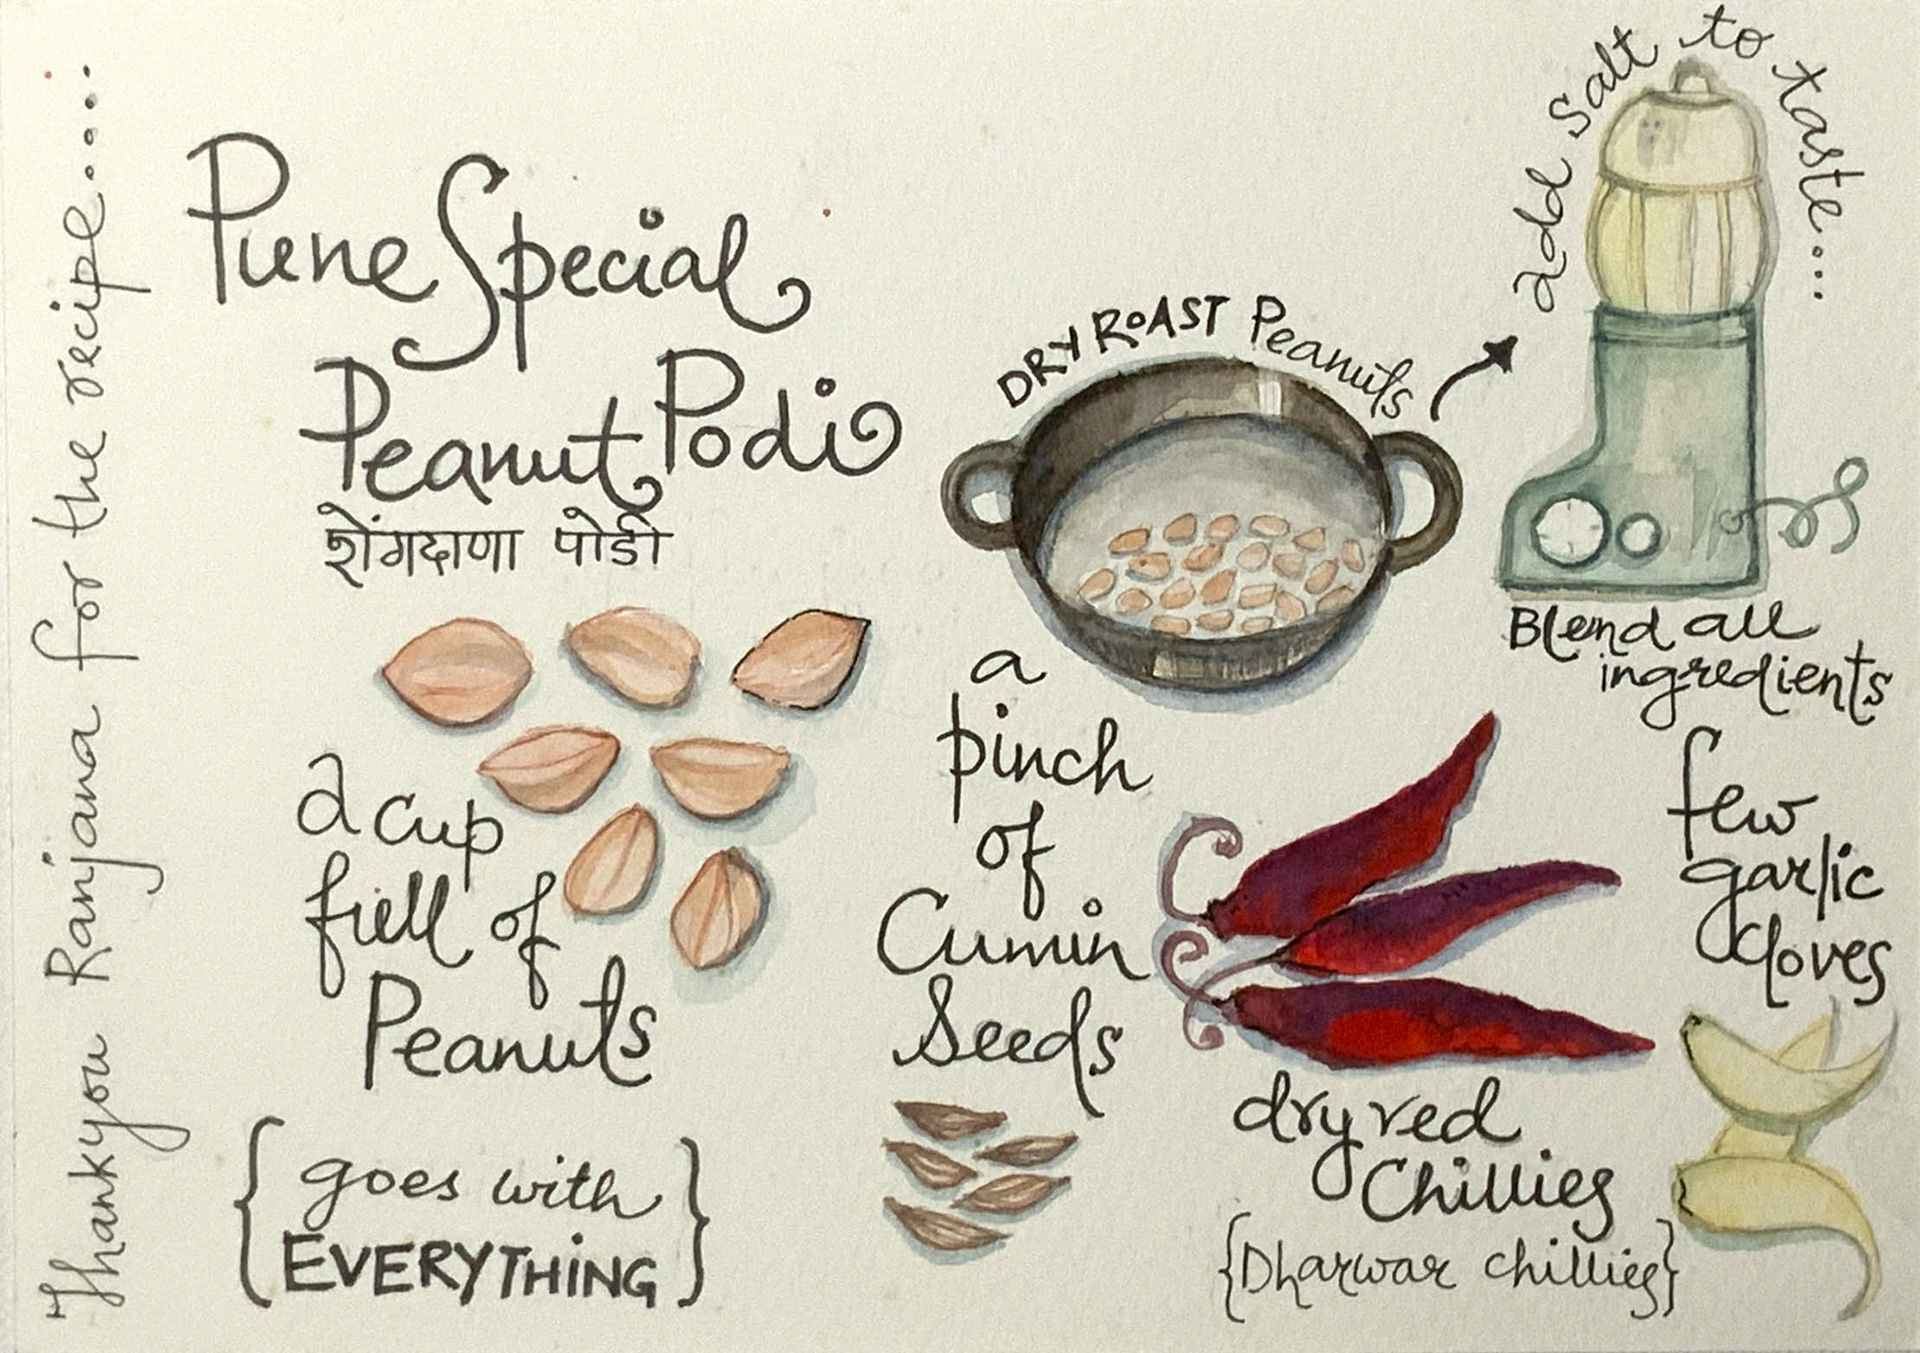 Thankyou Ranjana for the recipe.....
Pune Special
Peanut Podi
शेंगदाणा पोडी
a cup
full of
Peanuts
{goes with
EVERYTHING}
DRY ROAST Peanuts
add salt to taste...
Blend all
ingredients
a
pinch
of
Cumin
Seeds
dry red
Chillies
{Dharwar chillies}
few
garlic
cloves